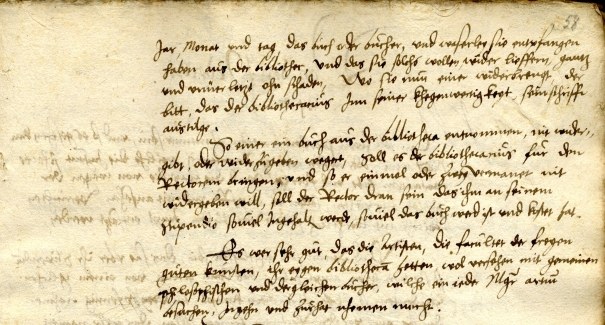 58
Jar Monat vnd tag, das buch oder bücher, vnd waserley sie entpfangen
haben aus der bibliothec, vnd das sie solchs wollen wider lieffern, gantz
vnd vnuerletzt ohn schaden, Wo sie nun einer widerbrengt, der
bitt, das der bibliothecarius Inn seiner kegenwertigkeyt, sein schrifft
austilge.
So einer ein buch aus der bibliotheca entnommen, nit wider-
gibt, oder widerzugeben wegert, soll es der bibliothecarius für den
Rectorem brengen, vnd so er einmal oder zwey vermanet nit
widergeben will, soll der Rector dran sein das ihm an seinem
stipendio souiel Ingehaltē werde, souiel das buch werd ist vnd kostet hat.
Es wer sehr gut, das die Artisten, die facultet der freyen
guten kunsten, ihr eygen bibliothecā hetten, wol versehen mit gemeinen
philosophischen vnd dergleichen bücher, wilche ein ieder Mgr̄ artiū
besuchen, vnd nhemen mocht.